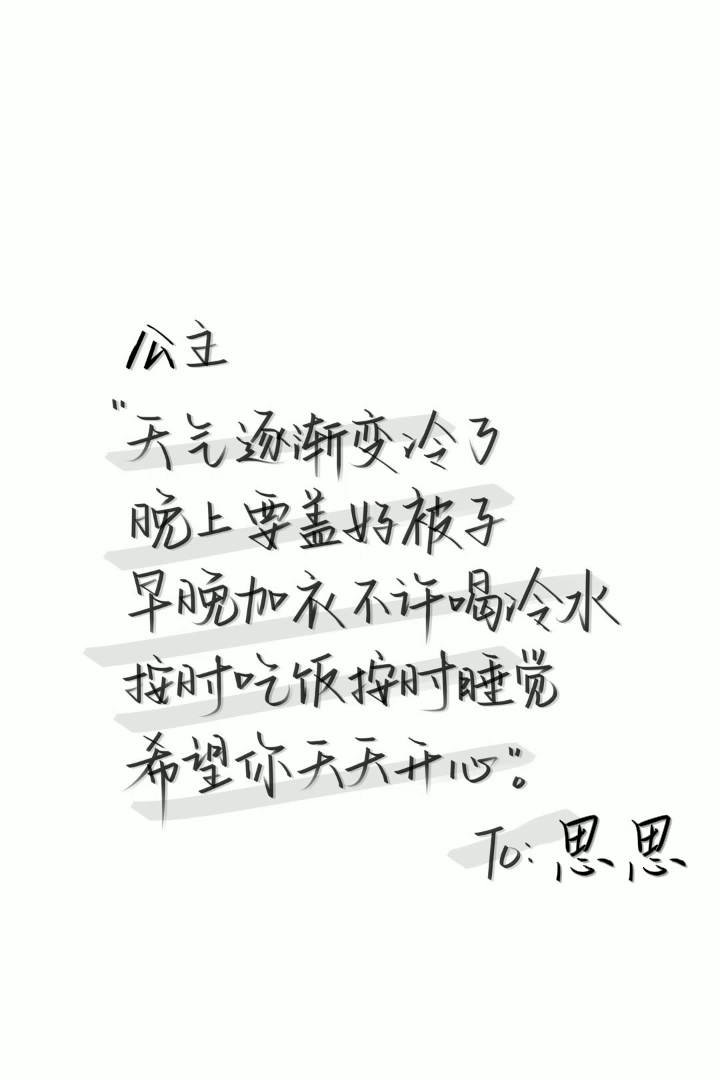 公主
"天气逐渐变冷了
晚上要盖好被子
早晚加衣不许喝冷水
按时吃饭按时睡觉
希望你天天开心"。
To:思思